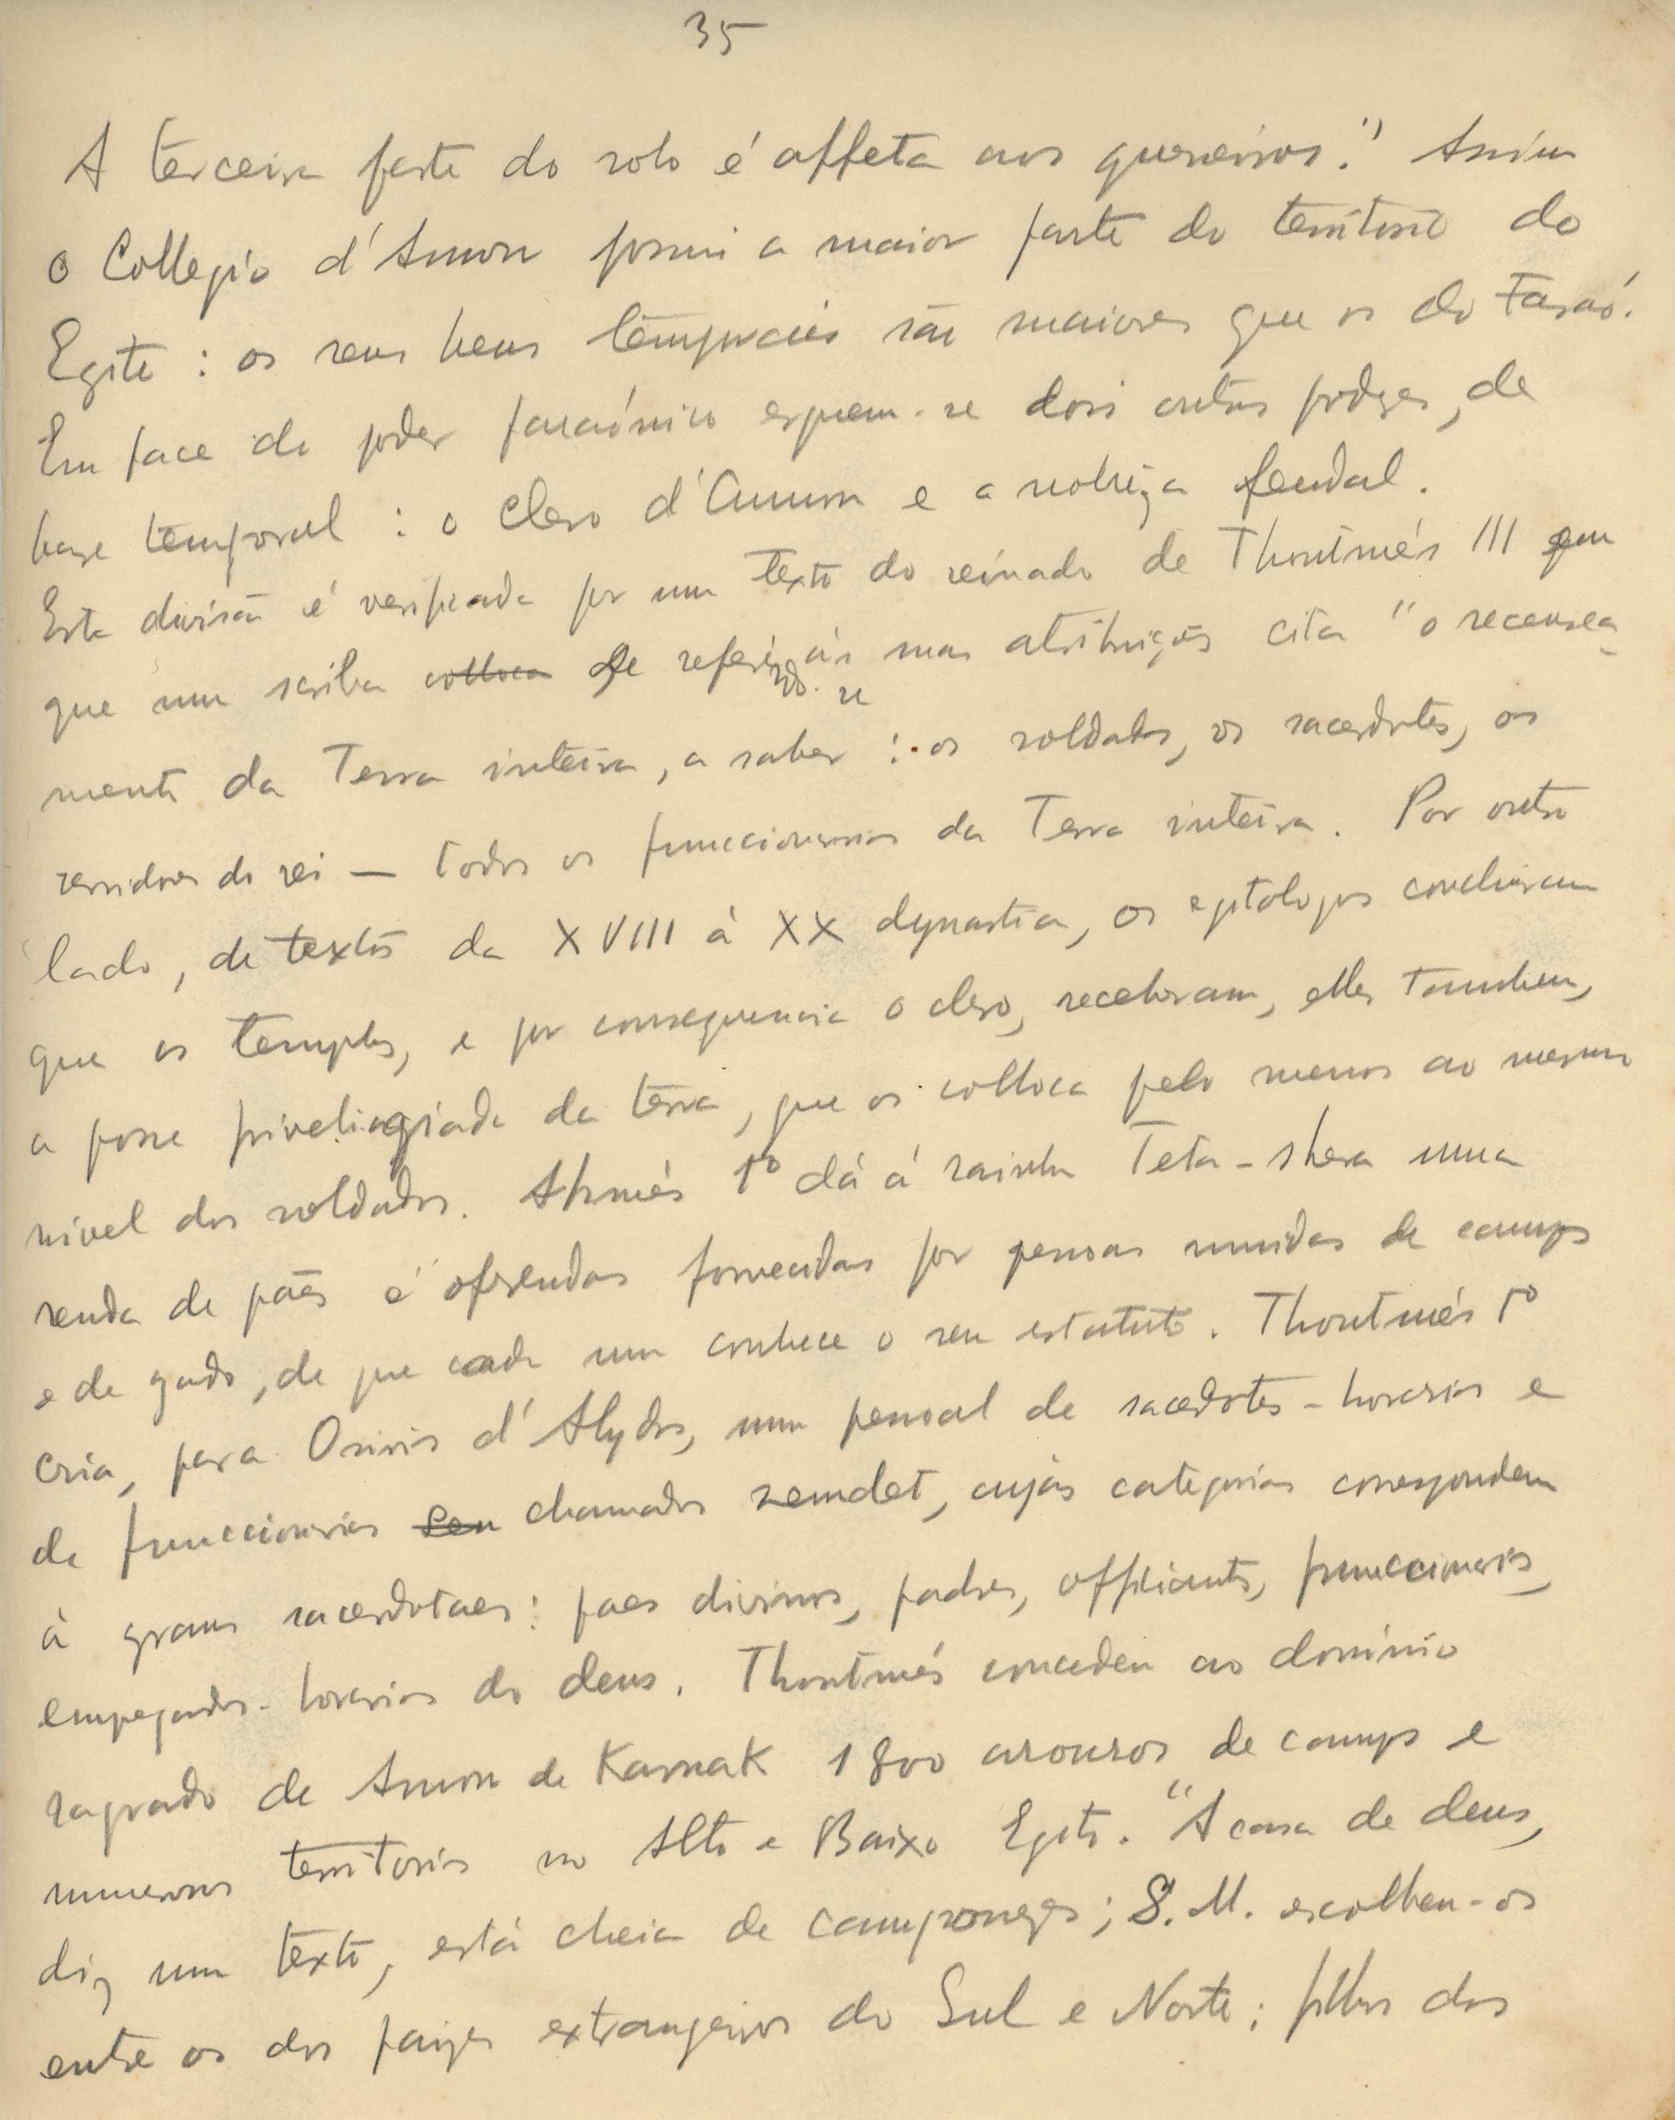 35
A terceira parte do solo é affeta aos guerreiros." Assim
o Collegio d'Amon possui a maior parte do territorio do
Egito : os seus bens temporaes são maiores que os do Faraó.
Em face do poder faraónico erguem-se dois outros podres, de
base temporal : o clero d'Amon e a nobreza feudal.
Esta divisão é verificada por um texto do reinado de Thoutmés III em
que um scriba colloca se referindo-se ás suas atribuições cita "o recensea
mento da Terra inteira, a saber : os soldados, os sacerdotes, os
servidores do rei — todos os funccionarios da Terra inteira. Por outro
lado, de textos da XVIII à XX dynastia, os egitologos concluiram
que os templos, e por consequencia o clero, receberam, elles tambem,
a posse priveligiada da terra, que os colloca pelo menos ao mesmo
nivel dos soldados. Ahmés 1º dá á rainha Teta-shera uma
renda de pães e oferendas fornecidas por pessoas munidas de campos
e de gado, de que cada um conhece o seu estatuto. Thoutmés 1º
cria, para Osiris d'Abydos, um pessoal de sacerdotes-horarios e
de funccionarios sem chamados semdet, cujas categorias correspondem
à graus sacerdotaes: paes divinos, padres, officiants, funccionarios,
empegados-horarios do deus. Thoutmés concedeu ao dominio
sagrado de Amon de Karnak 1800 arouros de campos e
numerosos territorios no Alto e Baixo Egito. "A casa de deus,
diz um texto, está cheia de camponezes; S. M. escolheu-os
entre os dos paizes extrangeiros do Sul e Norte; filhos dos